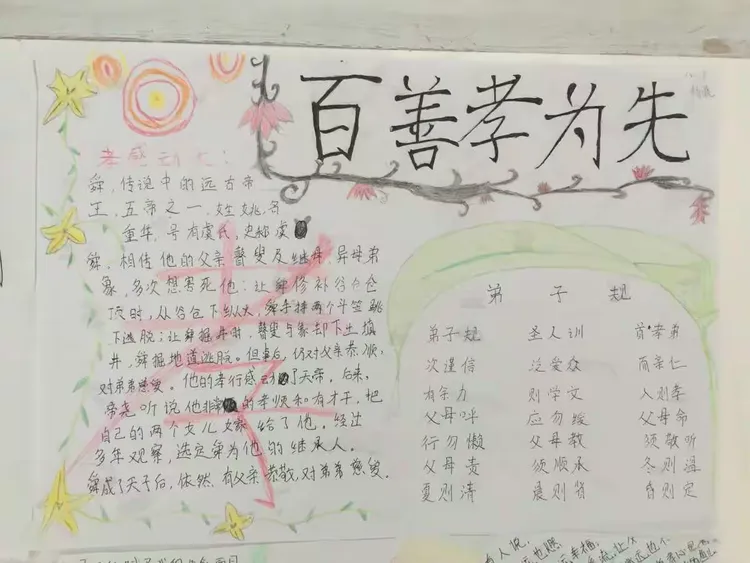 百善孝为先
孝感动天：
舜，传说中的远古帝
王，五帝之一，姓姚，名
重华，号有虞氏，史称虞
舜，相传他的父亲瞽叟及继母、异母弟
象，多次想害死他：让舜修补谷仓仓
顶时，从谷仓下纵火，舜手持两个斗笠跳
下逃脱；让舜掘井时，瞽叟与象却下土填
井，舜掘地道逃脱。但事后，仍对父亲恭顺，
对弟弟慈爱。他的孝行感动了天帝，后来，
帝尧听说他非常的孝顺和有才干，把
自己的两个女儿嫁给了他。经过
多年观察，选定舜为他的继承人。
舜成了天子后，依然，有父亲恭敬，对弟弟慈爱。
孝
弟子规
弟子规 圣人训 首孝弟
次谨信 泛爱众 而亲仁
有余力 则学文 入则孝
父母呼 应勿缓 父母命
行勿懒 父母教 须敬听
父母责 须顺承 冬则温
夏则凊 晨则省 昏则定
有人说，